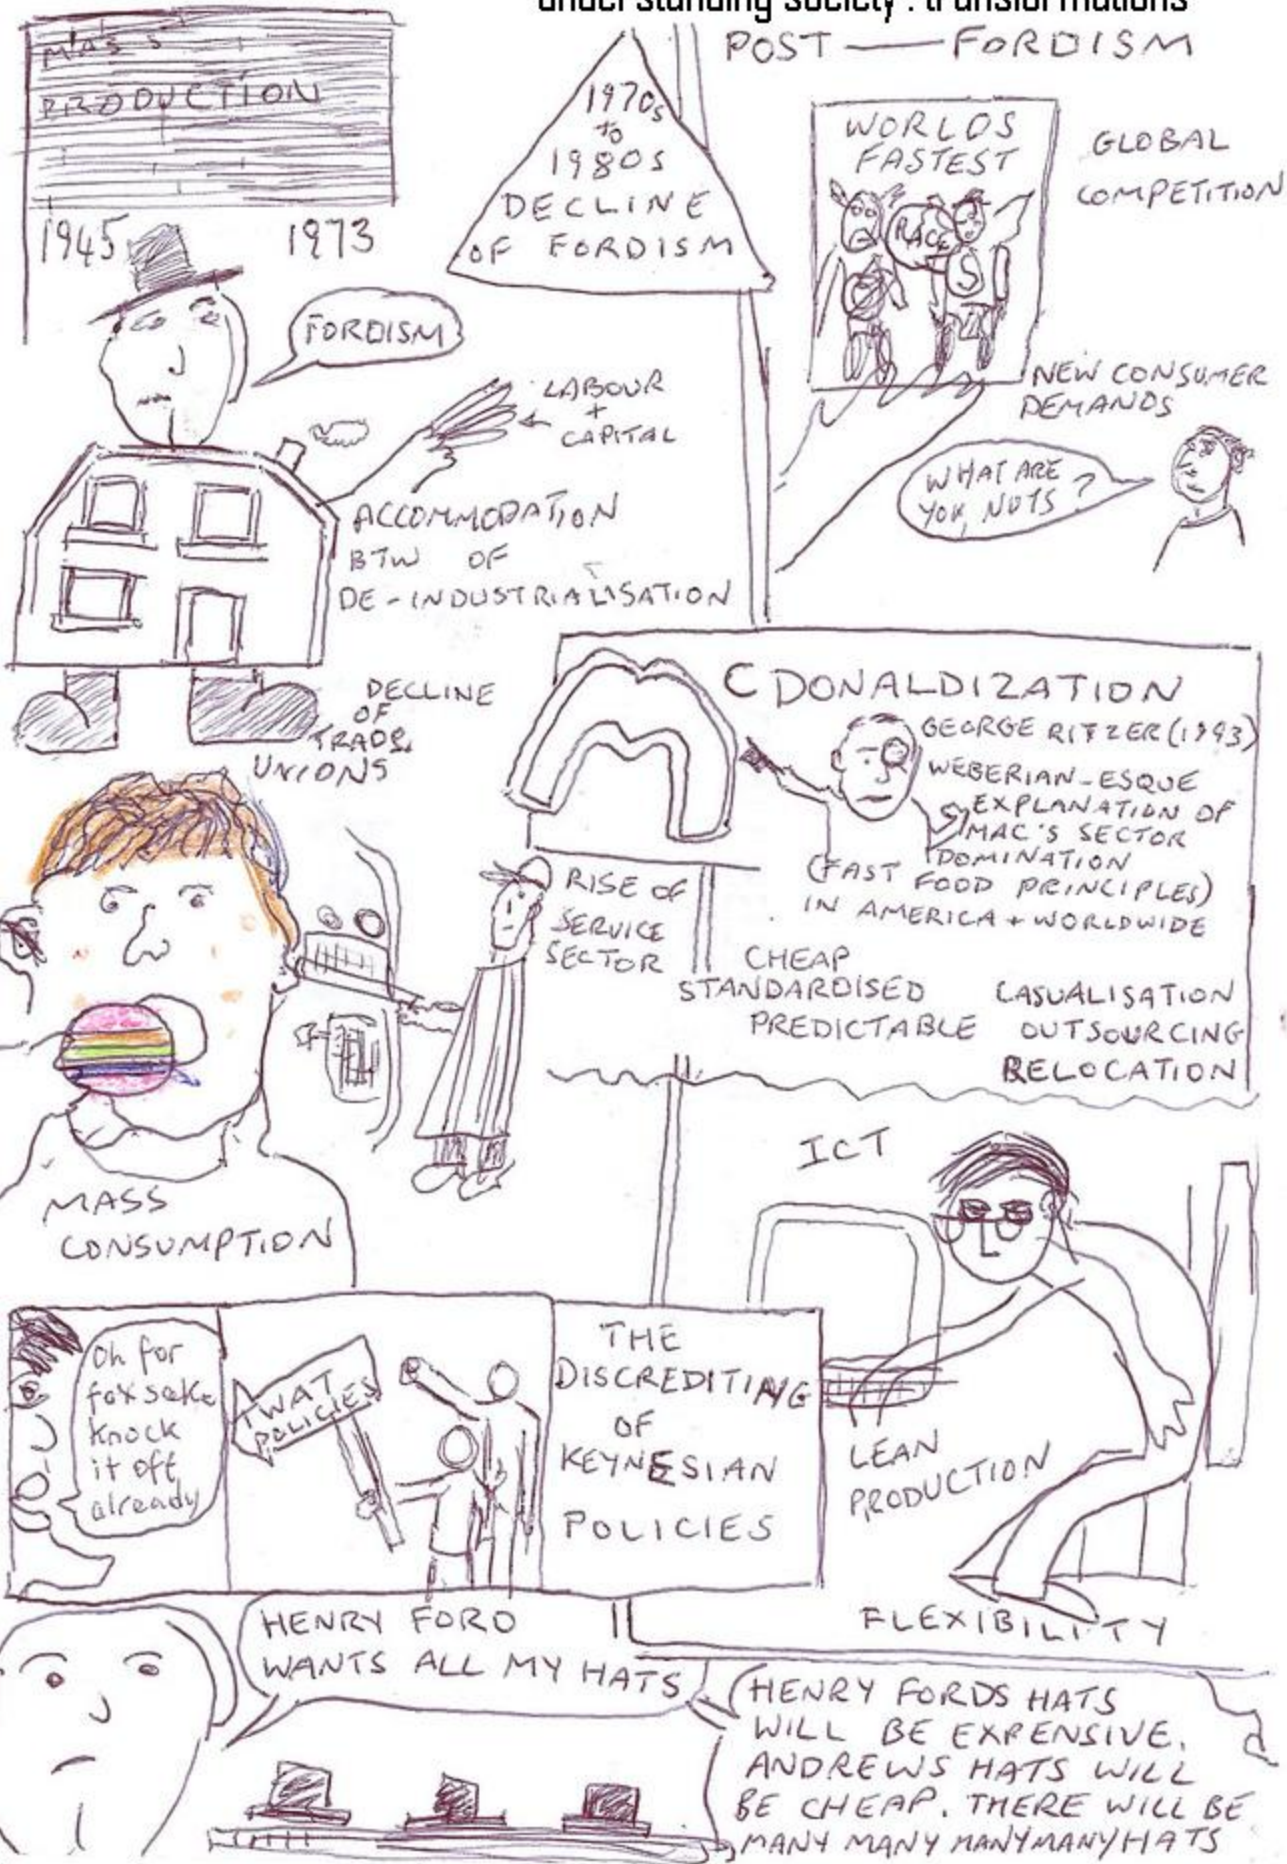 understanding society : transformations
MASS
PRODUCTION
1945 1973
FORDISM
LABOUR
+
CAPITAL
ACCOMMODATION
BTW OF
DE-INDUSTRIALISATION
DECLINE
OF
TRADE
UNIONS
1970s
to
1980s
DECLINE
OF FORDISM
POST — FORDISM
WORLDS
FASTEST
RACE
S
GLOBAL
COMPETITION
NEW CONSUMER
DEMANDS
WHAT ARE
YOU, NUTS ?
C DONALDIZATION
GEORGE RITZER (1993)
WEBERIAN-ESQUE
EXPLANATION OF
MAC'S SECTOR
DOMINATION
(FAST FOOD PRINCIPLES)
IN AMERICA + WORLDWIDE
RISE OF
SERVICE
SECTOR
CHEAP
STANDARDISED
PREDICTABLE
CASUALISATION
OUTSOURCING
RELOCATION
MASS
CONSUMPTION
ICT
LEAN
PRODUCTION
FLEXIBILITY
Oh for
fox sake
knock
it off
already
TWAT
POLICIES
THE
DISCREDITING
OF
KEYNESIAN
POLICIES
HENRY FORD
WANTS ALL MY HATS
HENRY FORDS HATS
WILL BE EXPENSIVE.
ANDREWS HATS WILL
BE CHEAP. THERE WILL BE
MANY MANY MANYMANY HATS